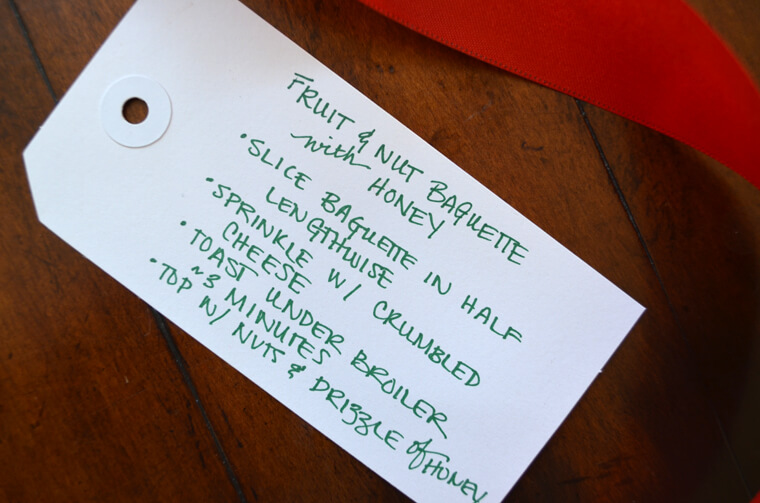 FRUIT & NUT BAGUETTE
with HONEY
• SLICE BAGUETTE IN HALF
LENGTHWISE
• SPRINKLE W/ CRUMBLED
CHEESE
• TOAST UNDER BROILER
~3 MINUTES
• TOP W/ NUTS & DRIZZLE of HONEY